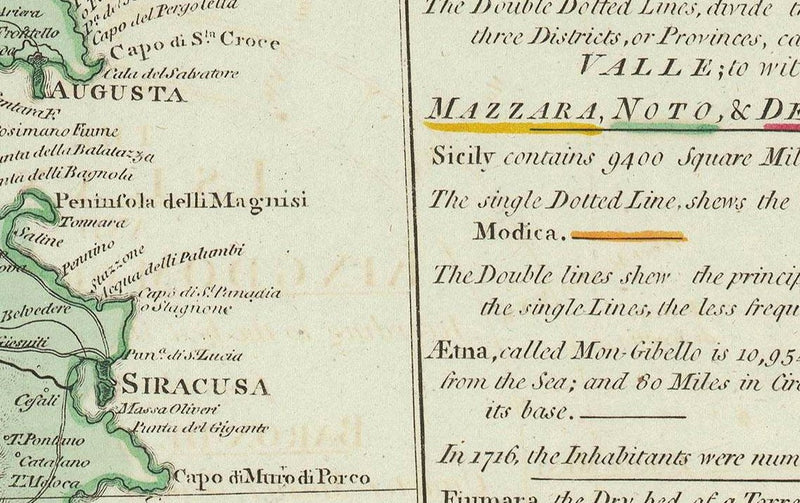 Ariera
Capo del Pergolella
Frontello
Capo di Sta. Croce
Cala del Salvatore
AUGUSTA
Cosimano Fiume
Punta della Balatazza
Punta delli Bagnola
Peninsola delli Magnisi
Tonnara
Saline
Pennino
Stazzone
Acqua delli Palumbi
Capo di Sa. Panadia
o Stagnone
Belvedere
Giesuiti
Pun. di S. Lucia
SIRACUSA
Cefali
Massa Oliveri
Punta del Gigante
T. Pontano
Catalano
T. Meloca
Capo di Muro di Porco
The Double Dotted Lines, divide
three Districts, or Provinces, ca
VALLE; to wit
MAZZARA, NOTO, & DE
Sicily contains 9400 Square Mil
The single Dotted Line, shews the
Modica.
The Double lines shew the princip
the single Lines, the less frequ
Ætna, called Mon-Gibello is 10,954
from the Sea; and 80 Miles in Cir
its base.
In 1716, the Inhabitants were num
Fiumara, the Dry bed of a Torre